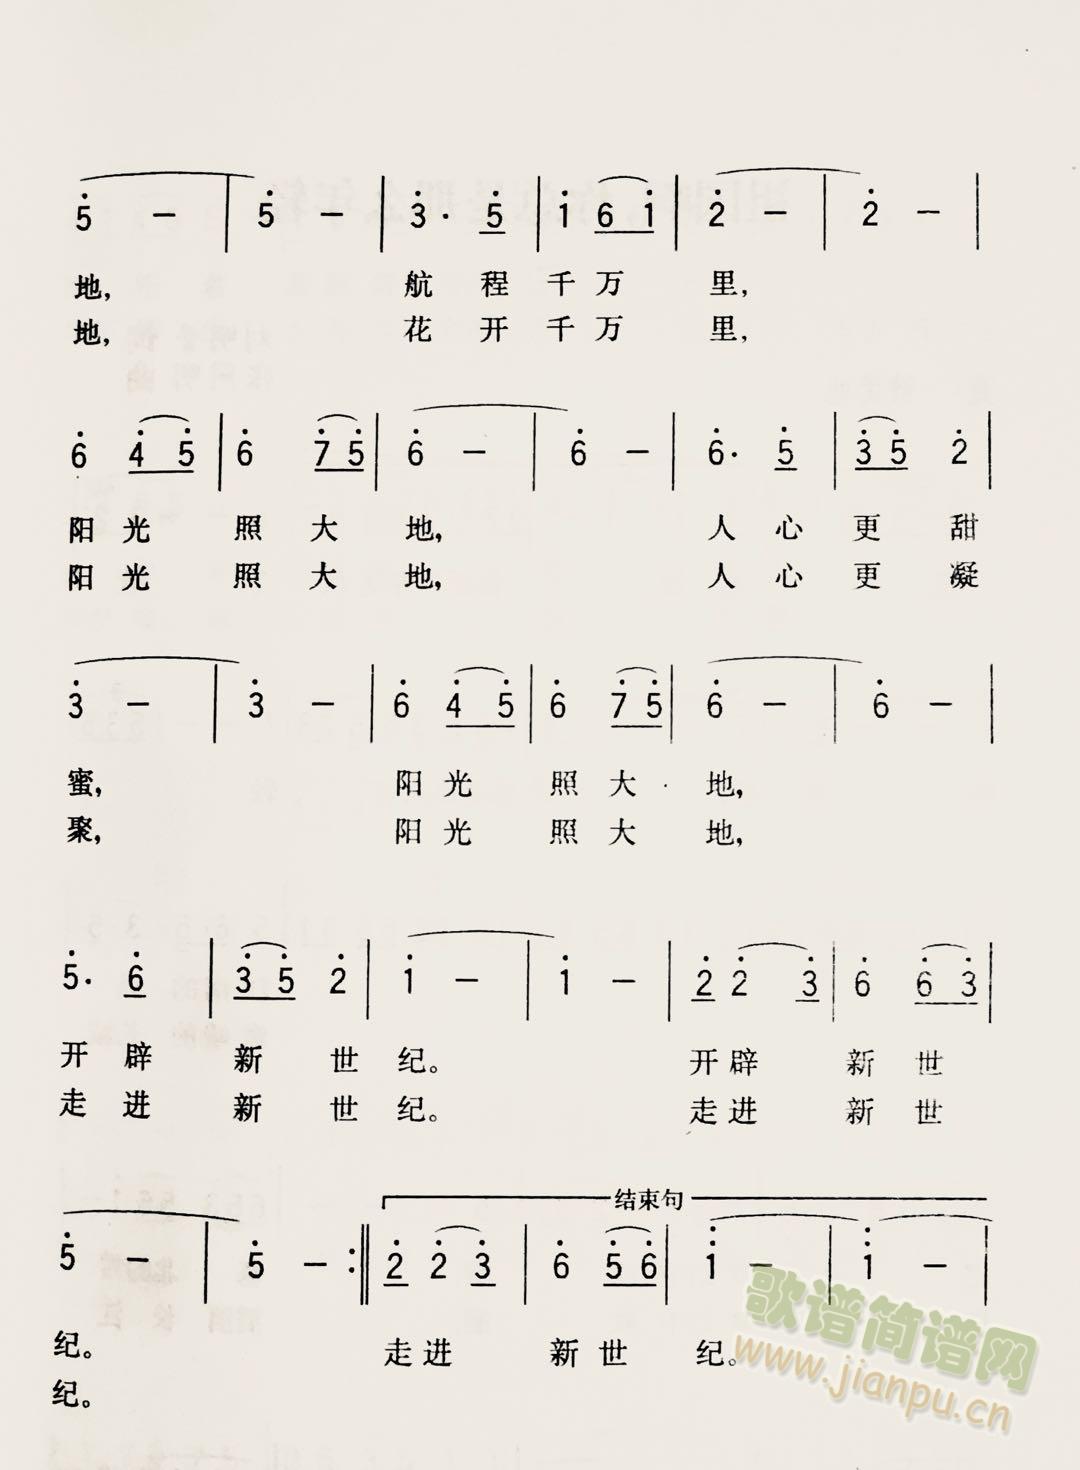 5 - | 5 - | 3· 5 | 1 6 1 | 2 - | 2 - |
地, 航 程 千 万 里,
地, 花 开 千 万 里,
6 4 5 | 6 7 5 | 6 - | 6 - | 6· 5 | 3 5 2 |
阳 光 照 大 地, 人 心 更 甜
阳 光 照 大 地, 人 心 更 凝
3 - | 3 - | 6 4 5 | 6 7 5 | 6 - | 6 - |
蜜, 阳 光 照 大 地,
聚, 阳 光 照 大 地,
5· 6 | 3 5 2 | 1 - | 1 - | 2 2 3 | 6 6 3 |
开 辟 新 世 纪。 开 辟 新 世
走 进 新 世 纪。 走 进 新 世
结束句
5 - | 5 - :‖ 2 2 3 | 6 5 6 | 1 - | 1 - |
纪。 走 进 新 世 纪。
纪。
歌谱简谱网
www.jianpu.cn